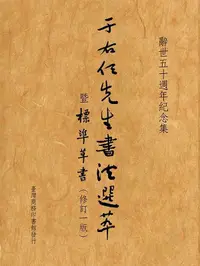 辭世五十週年紀念集
于右任先生書法選萃
暨標準草書(修訂一版)
臺灣商務印書館發行